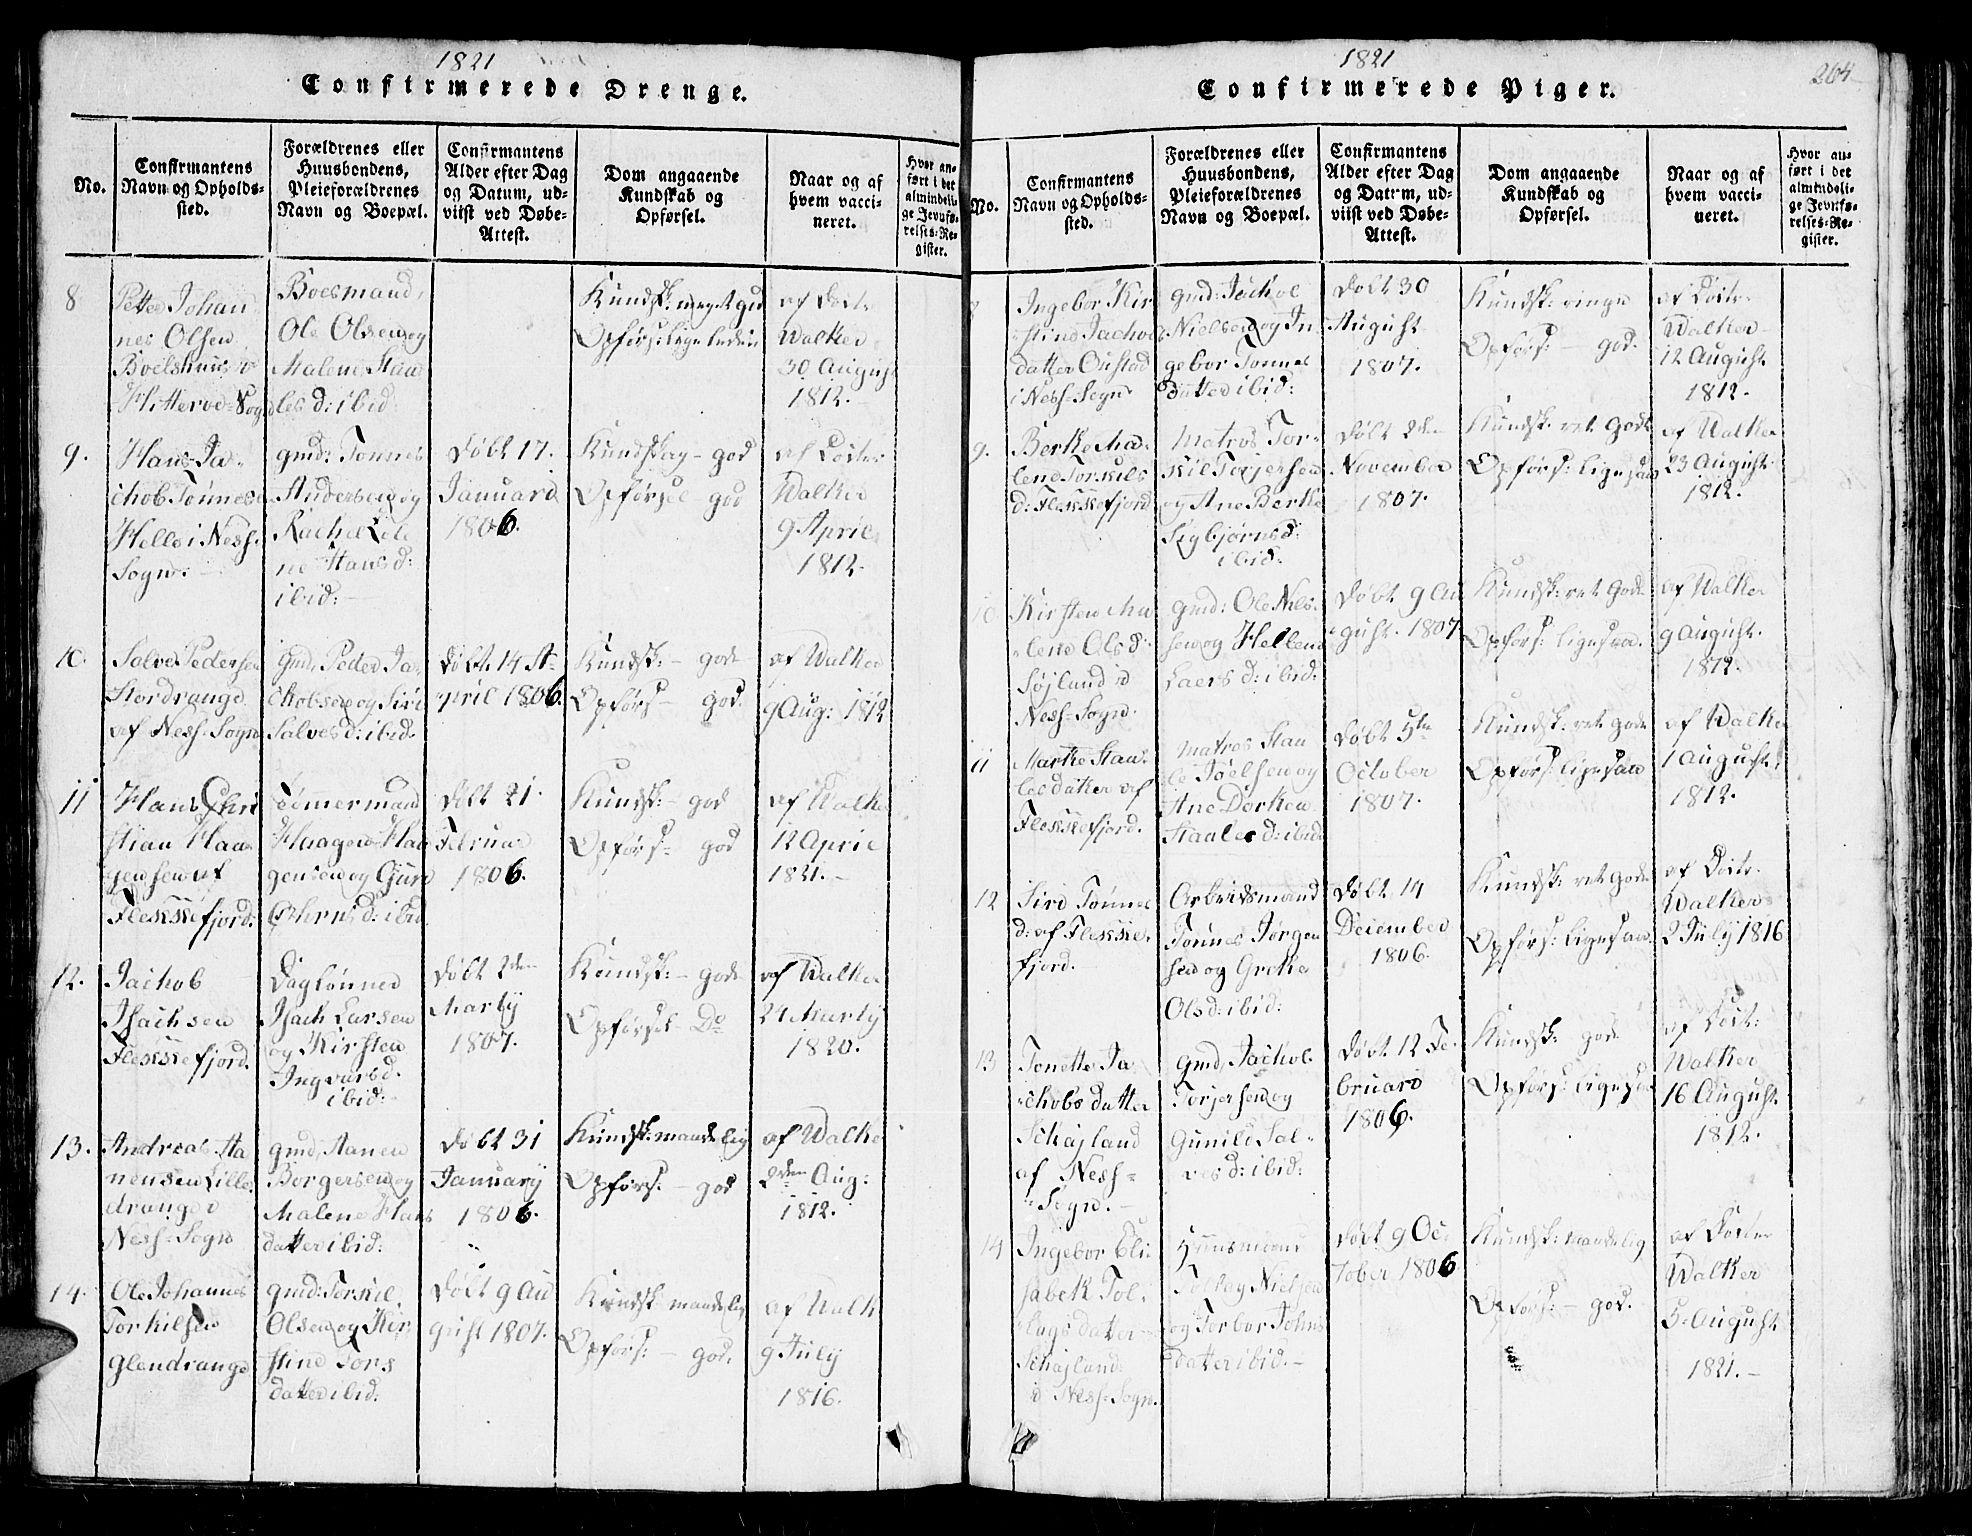 1821
Confirmerede Drenge.
No.
Confirmantens
Navn og Opholds-
sted.
Forældrenes eller
Huusbondens,
Pleieforældrenes
Navn og Boepæl.
Confirmantens
Alder efter Dag
og Datum, ud-
viist ved Døbe-
Attest.
Dom angaaende
Kundskab og
Opførsel.
Naar og af
hvem vacci-
neret.
Hvor an-
ført i det
almindeli-
ge Jevnfø-
relses-Re-
gister.
8
Petter Johan-
nes Olsen
Hitterøe-Sogn
Boesmand
Ole Olsen og
Malene Staa
les d: ibid:
Kundsk: meget gd
Opførs: ligeledes
af Doct:
Walker
30 August
1812.
9.
Hans Ja-
chob Tønnes
Helle i Ness-
Sogn:
gmd: Tønnes
Andersen og
Rachel Le
ne Hans d:
ibid:
Døbt 17.
Januari
1806.
Kundskab - god
Opførsel god
af Docter
Walker
9 April
1812.
10.
Salve Pedersen
Stordrange
af Ness-Sogn
gmd, Peder Ja-
chobsen og Siri
Salves d: ibid.
Døbt 14 A-
pril 1806.
Kundsk: - god
Opførs - god.
af Walker
9 Aug: 1812
11
Hans Chri
stian Haa-
gensen af
Flekkefjord:
Tømermand
Haagen Haa
gensen og Guri
Ohrns d: ibid
Døbt 21.
Februar
1806.
Kundsk: - god
Opførs - god
af Walker
12 April
1821.
12.
Jachob
Isachsen
Flekkefjord.
Dagløner
Isach Larsen
og Kirsten
Ingvars d.
ibid:
Døbt 2den
Marty
1807.
Kundsk: - god
Opførsel - Do
af Walker
24 Marty
1820.
13.
Andreas Aa
nensen Lille
drange
Ness-Sogn
gmd, Aanen
Børgersen og
Malene Hans
datter ibid:
Døbt 31
January
1806.
Kundsk: maadelig
Opførs: - god
af Walker
2den Aug:
1812.
14.
Ole Johannes
Torkilsen
Glendrange
gmd: Torkil
Olsen og Kir
stine Tors
datter ibid:
Døbt 9 Au
gust 1807.
Kundsk maadelig
Opførs: - god.
af Walk
9 July
1816.
1821
264
Confirmerede Piger.
No.
Confirmantens
Navn og Opholds-
sted.
Forældrenes eller
Huusbondens,
Pleieforældrenes
Navn og Boepæl.
Confirmantens
Alder efter Dag
og Datum, ud-
viist ved Døbe-
Attest.
Dom angaaende
Kundskab og
Opførsel.
Naar og af
hvem vacci-
neret.
Hvor an-
ført i det
almindeli-
ge Jevnfø-
relses-Re-
gister.
8
Ingebor Kir
stine Jachobs
datter
i Ness-Sogn
gmd: Jachob
Nielsen og In
gebor Tønnes
datter ibid:
Døbt 30
August
1807.
Kundsk: ringe
Opførs: - god.
af Doctr.
Walker
12 August
1812.
9.
Berthe Ma-
lene Torkils
d: Flekkefjord
Matros Tor-
kil Torjersen
og Ane Berthe
Sigbjørns d:
ibid:
Døbt 2den
November
1807.
Kundsk: ret god
Opførs: ligesaa
af Walker
23 August
1812.
10
Kirsten Ma
lene Ols d:
Søjland
Ness-Sogn.
gmd: Ole Nils-
sen og Hellene
Laers d: ibid:
Døbt 9 Au
gust. 1807
Kundsk: ret god
Opførs: ligesaa.
af Walker
9 August
1812.
11
Marthe Staa-
les datter af
Flekkefjord.
Matros Staa
le Joelsen og
Ane Dorthea
Staales d: ibid
Døbt 5te
October
1807.
Kundsk: ret god
Opførs: ligesaa
af Walker
1 August
1812.
12
Siri Tønne
d: af Flekke-
fjord.
Arbeidsmand
Tønnes Jørgen
sen og Grethe
Ols d: ibid:
Døbt 14
December
1806.
Kundsk: ret god
Opførs: ligesaa.
af Doctr.
Walker
2 July 1816
13
Tonette Ja
chobs datter
Schajland
af Ness-
Sogn.
gmd, Jachob
Torjersen og
Gunild Sal-
ves d: ibid:
Døbt 12 Fe-
bruari
1806.
Kundsk: god
Opførs: ligesaa
af Doct:
Walker
16 August
1812.
14
Ingebor Eli
sabeth Tol-
lags datter
Schajland
i Ness-Sogn.
Huusmand
Tollag Nielsen
og Torbor Johns
datter ibid.
Døbt 9 Oc
tober 1806
Kundsk: maadelig
Opførs: - god.
af Docter
Walker
5 August
1821.